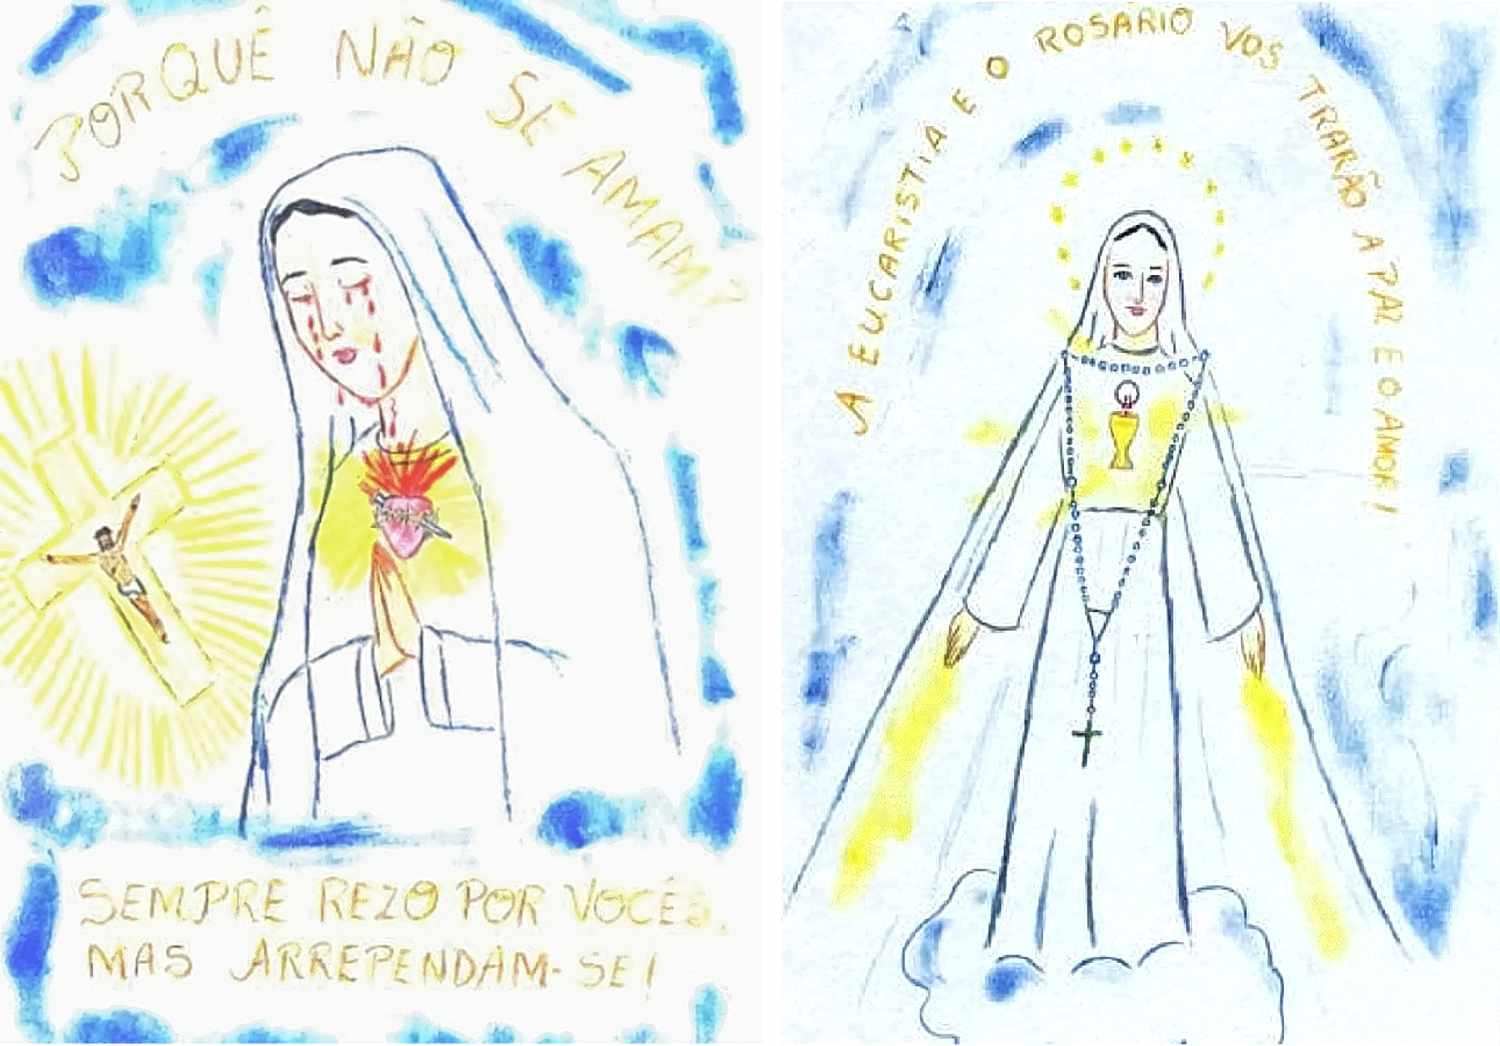 PORQUÊ NÃO SE AMAM?
SEMPRE REZO POR VOCÊS,
MAS ARREPENDAM-SE!
A EUCARISTIA E O ROSARIO VOS TRARÃO A PAZ E O AMOR!